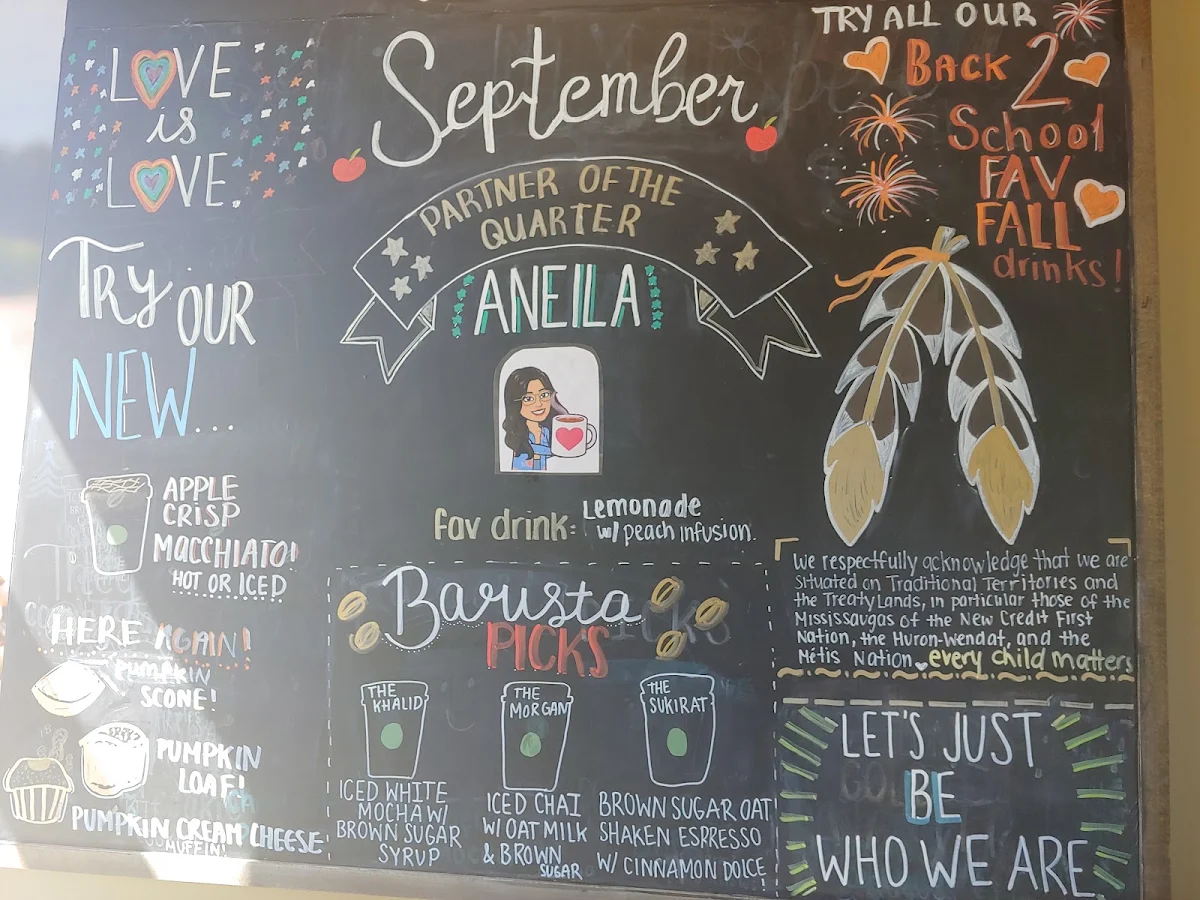 LOVE
is
LOVE.
TRY OUR
NEW...
APPLE
CRISP
MACCHIATO!
HOT OR ICED
HERE AGAIN!
PUMPKIN
SCONE!
PUMPKIN
LOAF!
PUMPKIN CREAM CHEESE
MUFFIN!
September
PARTNER OF THE
QUARTER
ANEILA
fav drink: Lemonade
w/ peach infusion.
Barista
PICKS
THE
KHALID
ICED WHITE
MOCHA W/
BROWN SUGAR
SYRUP
THE
MORGAN
ICED CHAI
W/ OAT MILK
& BROWN
SUGAR
THE
SUKIRAT
BROWN SUGAR OAT
SHAKEN ESPRESSO
W/ CINNAMON DOLCE
TRY ALL OUR
BACK 2
School
FAV
FALL
drinks!
We respectfully acknowledge that we are
situated on Traditional Territories and
the Treaty Lands, in particular those of the
Mississaugas of the New Credit First
Nation, the Huron-Wendat, and the
Métis Nation. every child matters
LET'S JUST
BE
WHO WE ARE